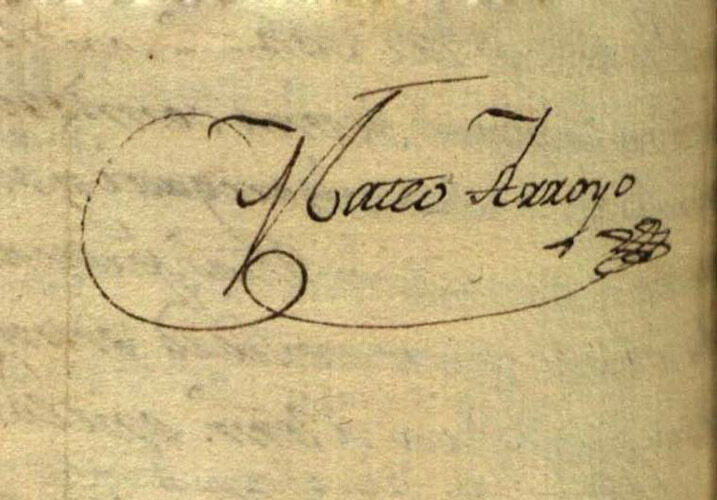 Mateo Arroyo